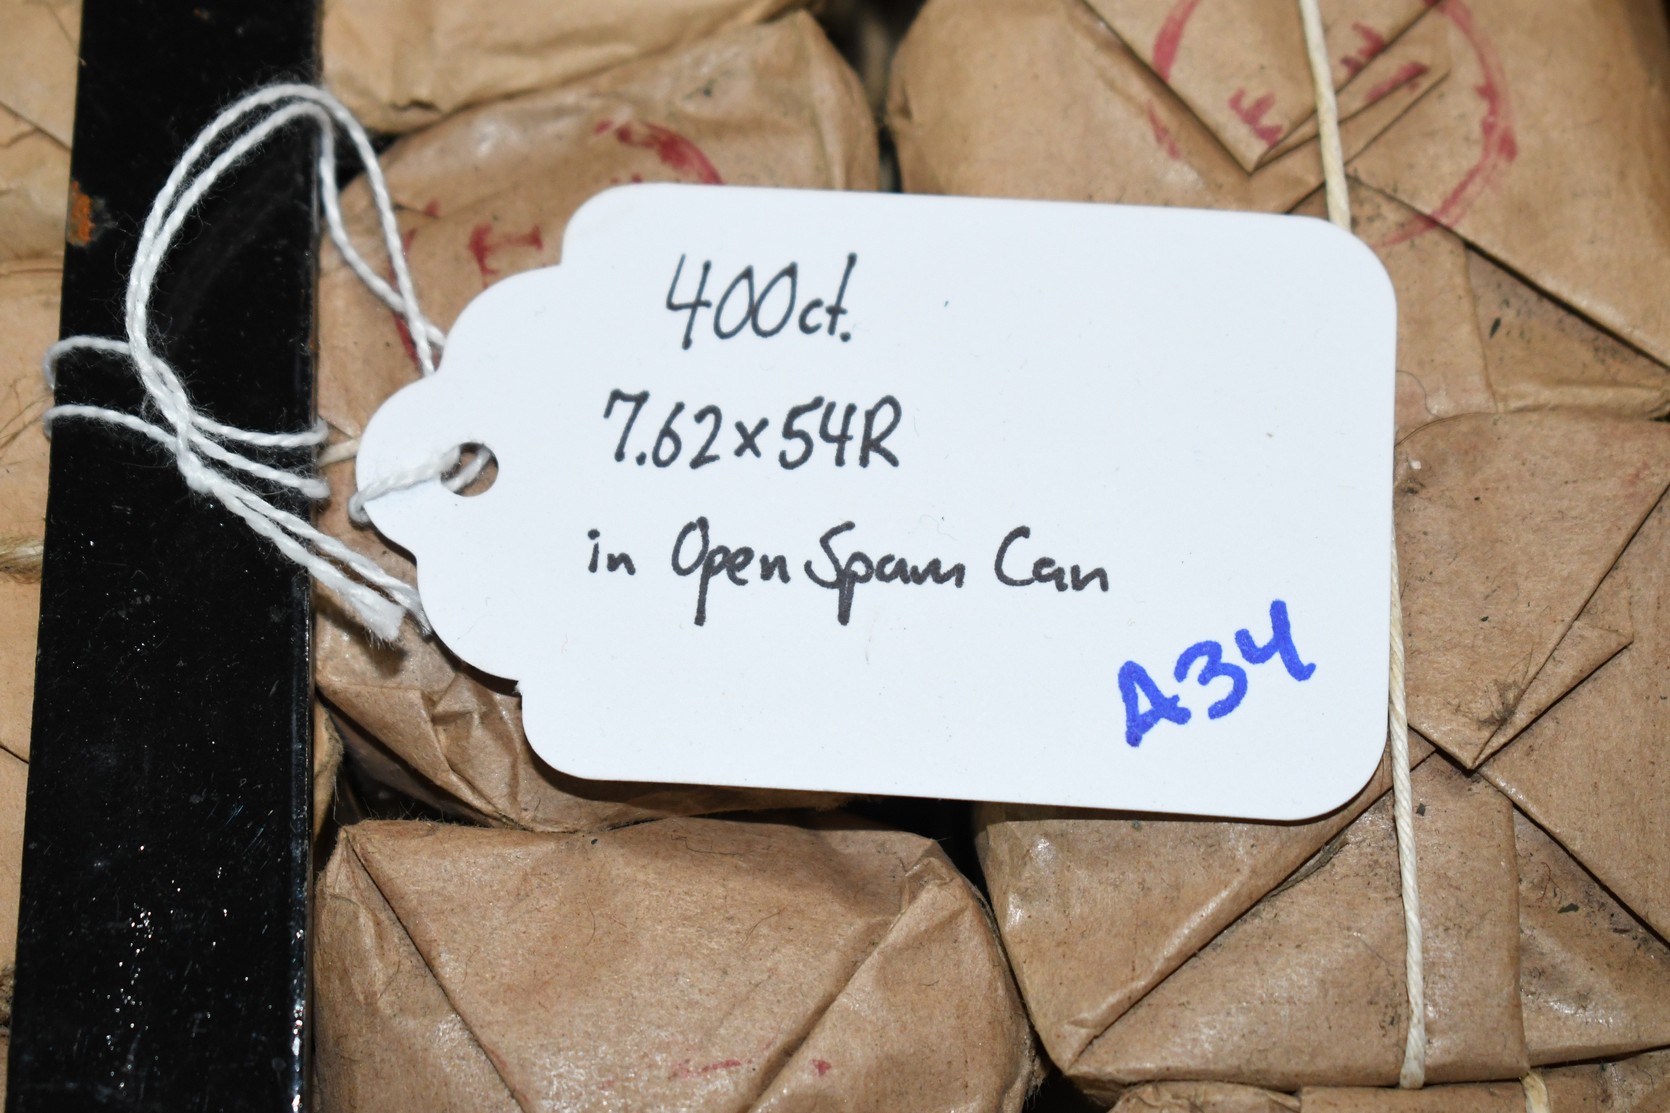 400ct.
7.62x54R
in Open Spam Can
A34